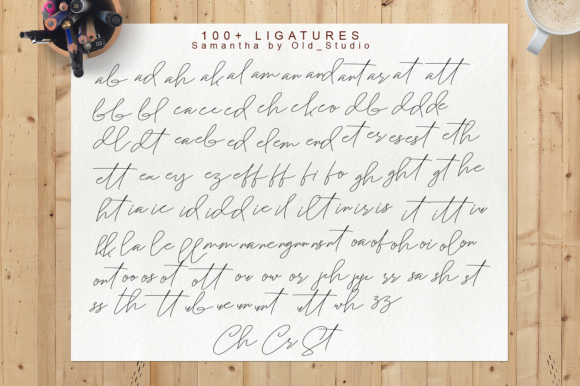 100+ LIGATURES
Samantha by Old_Studio
ab ad ah ak al am an and ant ar at att
bb bl ea ee ed eh ek eo db dd de
dl dt ea eb ed el em end et er es est eth
ett ex ey ez eff ff fi fo gh ght gt he
ht ia ie id id d ie il ilt in ir is it itt iu
lk la le ll mm na ne ng nn ns nt oa of oh oi ol on
ont oo os ot ott ou ow or ph pp rr sa sh st
ss th tt ub ue un unt utt wh zz
Ch Cr St